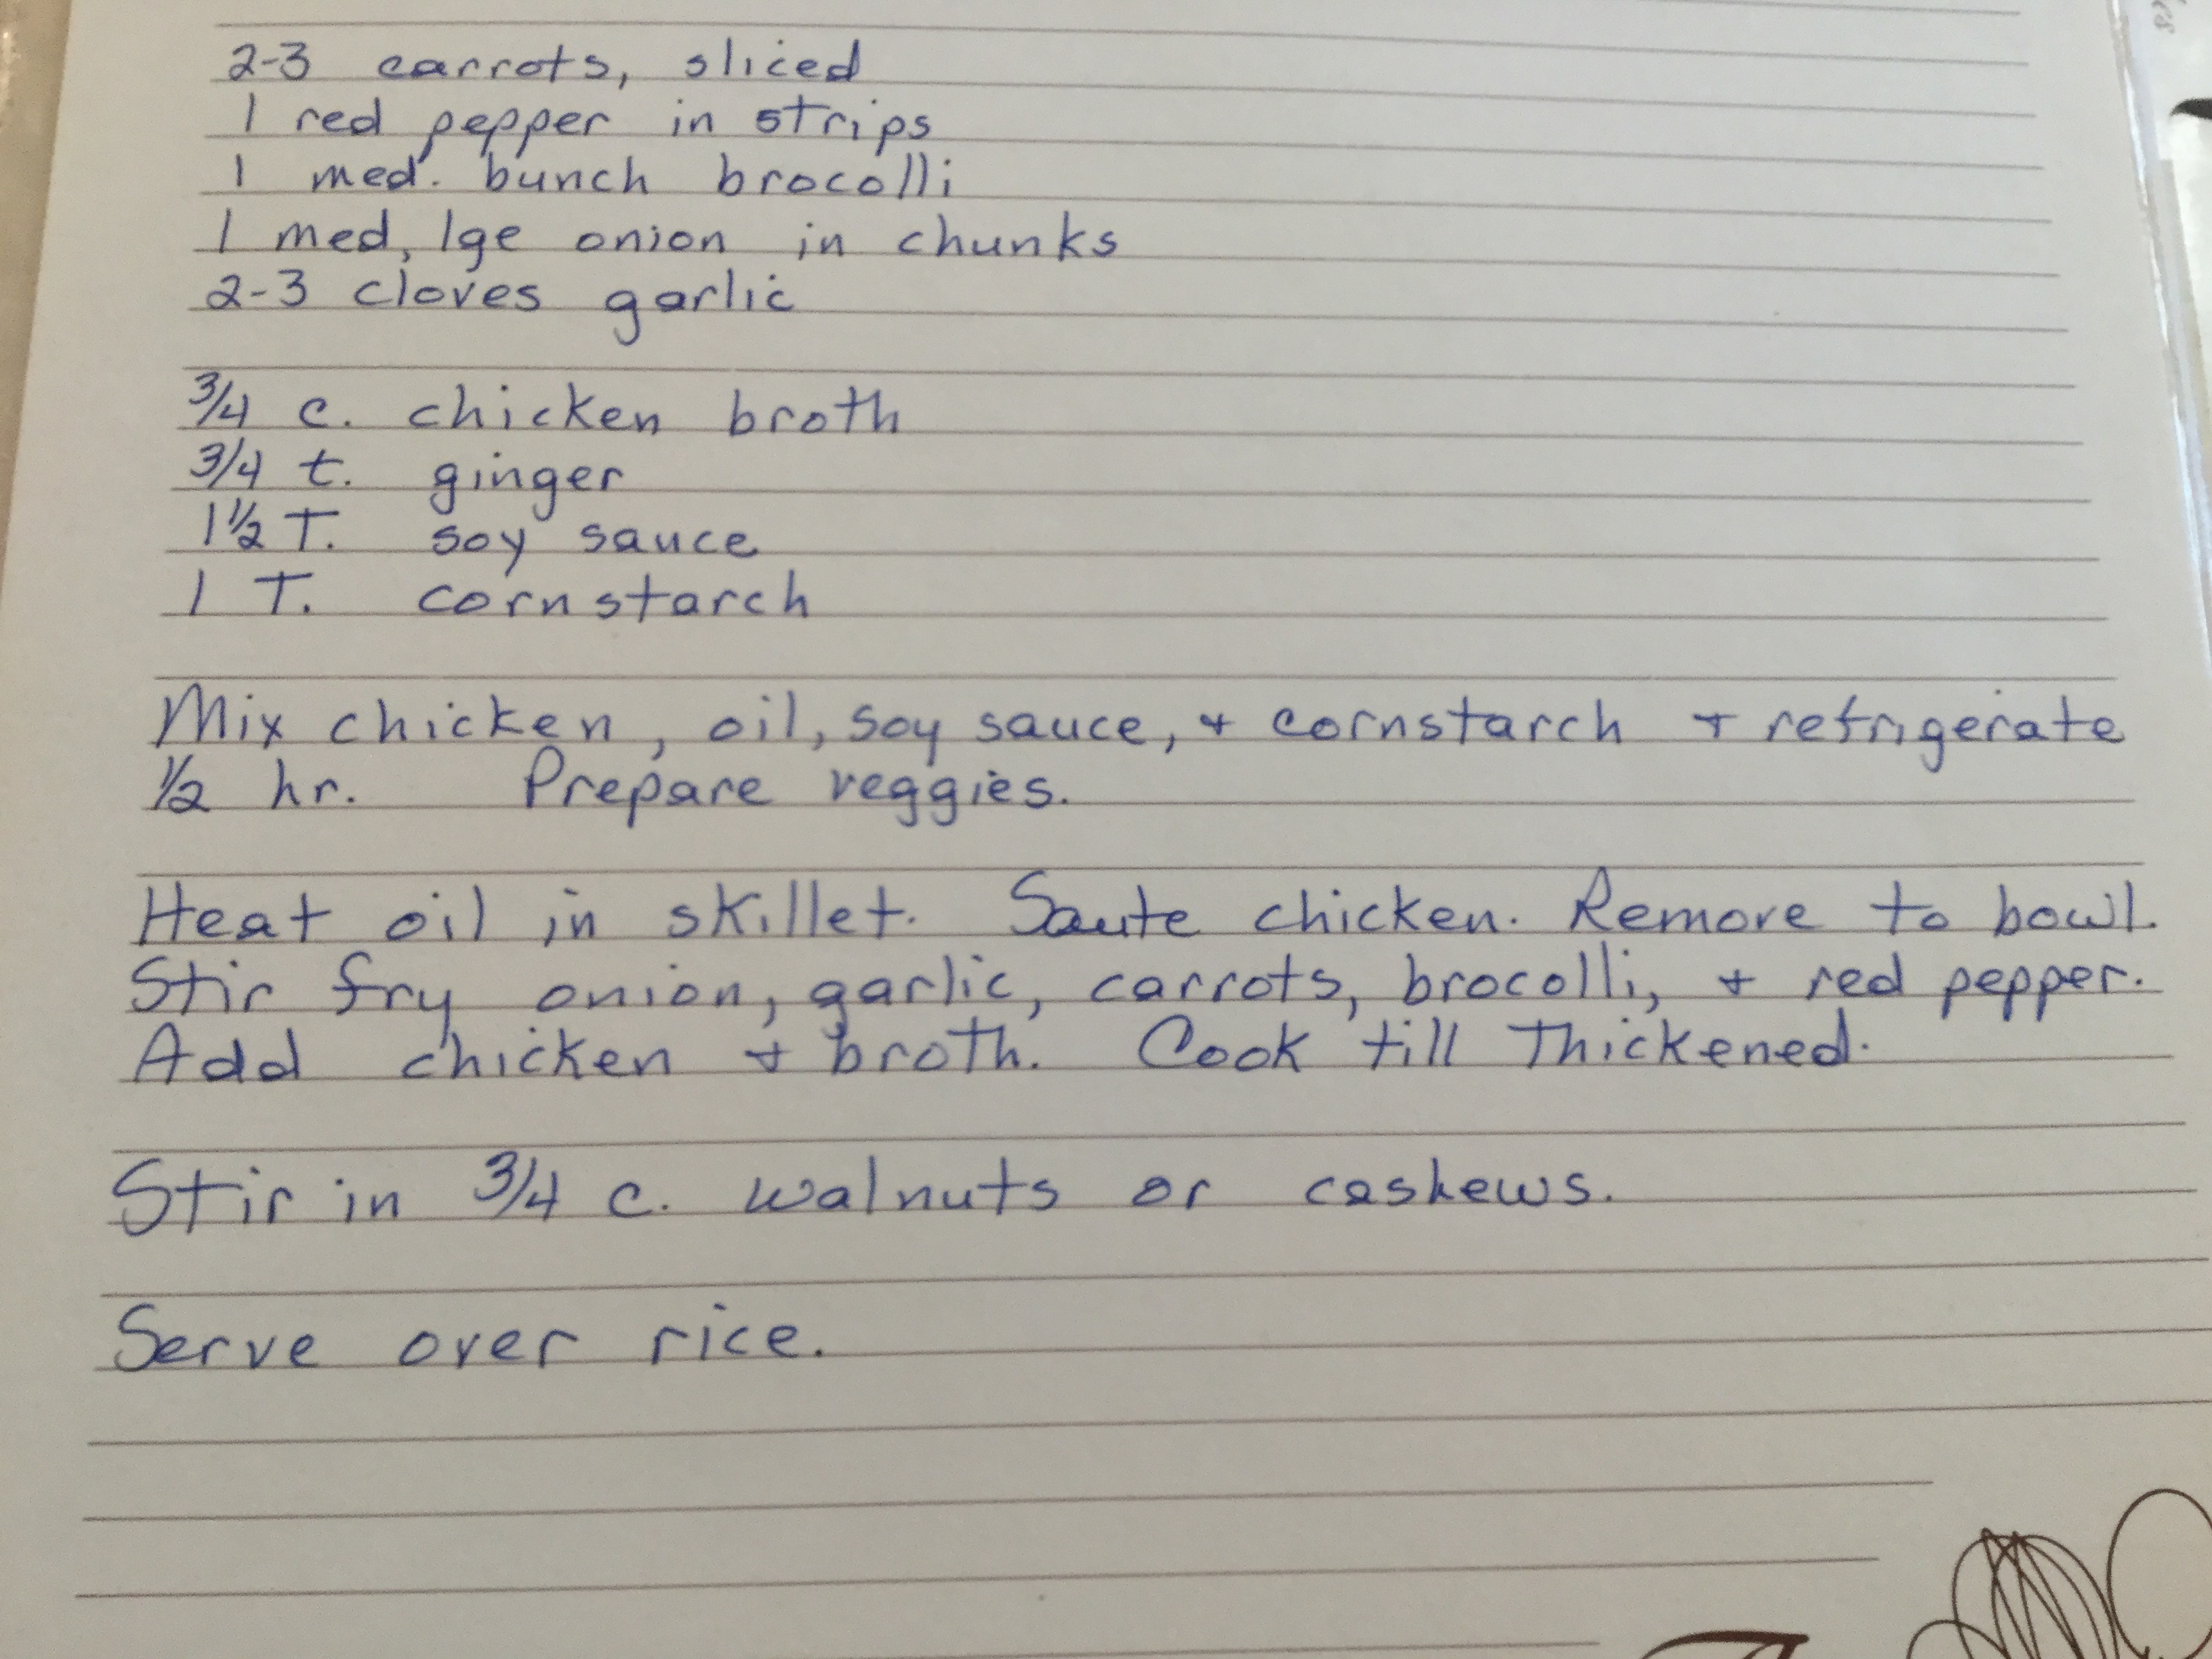 2-3 carrots, sliced
1 red pepper in strips
1 med. bunch brocolli
1 med, lge onion in chunks
2-3 cloves garlic
3/4 c. chicken broth
3/4 t. ginger
1 1/2 T. soy sauce
1 T. cornstarch
Mix chicken, oil, soy sauce, + cornstarch + refrigerate
1/2 hr. Prepare veggies.
Heat oil in skillet. Saute chicken. Remove to bowl.
Stir fry onion, garlic, carrots, brocolli, + red pepper.
Add chicken + broth. Cook till Thickened.
Stir in 3/4 c. walnuts or cashews.
Serve over rice.